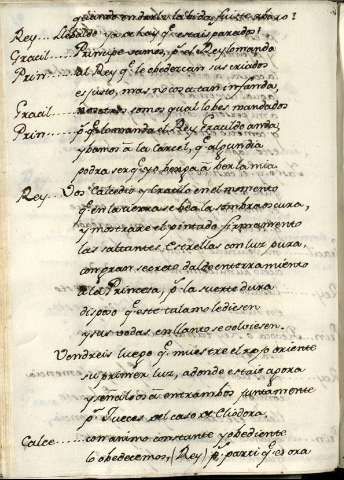 quando en darle la bida fuiste abaro!
Rey.... Llebaldo ya acabad q̃ estais parados?
Gracil.... Principe vamos, p̃ el Rey lo manda
Prin.... al Rey q̃ le obedezcan sus criados
es justo, mas no cosa tan infanda,
Gracil.... nosotros somos qual lobes mandados
Prin.... p̃ q̃ lo manda el Rey, Gracildo anda,
y bamos a la carcel, q̃ algun dia
podra ser q̃ yo benga a ber la mia
Rey.... Vos Calcedio y Gracilo en el momento
q̃ en la tierra se bea la sombra oscura,
y mostrare el pintado firmamento
las saltantes estrellas con luz pura,
con gran secreto dalde enterramiento
a la Princesa, p̃ la suerte dura
dispuso q̃ este talamo le diesen
y sus vodas en llanto se volviesen.
Vendreis luego q̃ muestre el rojo oriente
su primer luz, adonde estais agora
y señaloos a entrambos juntamente
p̃ Jueces del caso de Cliodora,
Calce.... con animo constante y obediente
lo obedecemos, (Rey) p̃ parti q̃ es ora